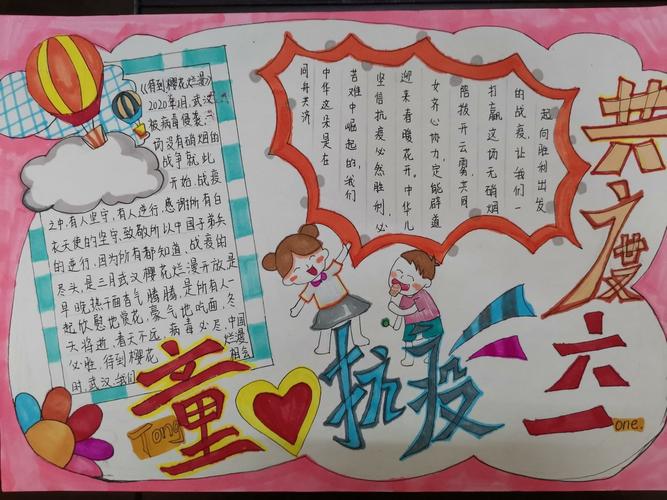 《待到樱花烂漫》
2020年1月,武汉
被病毒侵袭,一
场没有硝烟的
战争就此
开始。战疫
之中,有人坚守,有人逆行,感谢所有白
衣天使的坚守,致敬所以中国子弟兵
的逆行,因为所有都知道,战疫的
尽头,是三月武汉樱花烂漫开放,是
早晚热干面香气腾腾,是所有人一
起欣慰地赏花,豪气地吃面,冬
天将逝,春天不远,病毒必尽,中国
必胜,待到樱花烂漫
时,武汉,我们相会
同舟共济
中华民族是在
苦难中崛起的,我们
坚信抗疫必然胜利,必
迎来春暖花开。中华儿
女齐心协力,定能辟道
拨开云雾,共同
打赢这场无硝烟
的战疫,让我们一
起向胜利出发
共度六一
one.
童抗疫
Tong